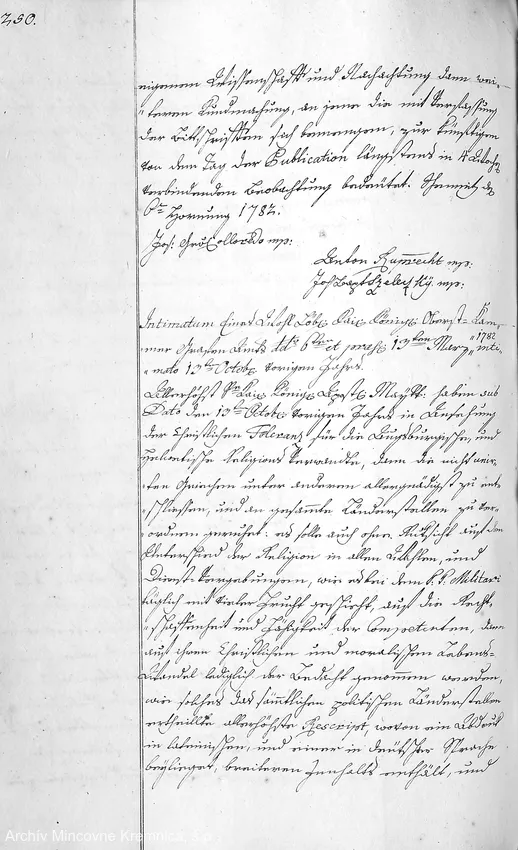 250.
eigenen Wissenschaft und Nachachtung dann wei-
"teren Kundmachung, an jene die mit Verfassung
der Bittschriften sich bemengen, zur künftigen
von dem Tag der Publication längstens in 4 Woch:
verbindenden Beobachtung bedeutet. Schemnitz d
6te Hornung 1782.
Jos: Gr: Colloredo mp:
Anton Ruprecht mp:
Jos
Intimatum Eines Wohl Löbl: Kais: Königl: Oberst-Kam-
mer Grafen Amts ddto 6ten et praes: 13ten Marz 1782 inti-
"mato 13te Octob: vorigen Jahrs.
Allerhöchst Se Kais: Königl: Apost: Maytt: haben sub
Dato den 13te Octob: vorigen Jahrs in Ansehung
der Christlichen Toleranz für die Augsburgische, und
Helvetische Religions Verwandte, dann die nicht unir-
ten Griechen unter anderen allergnädigst zu ent-
"schliessen, und an gesammte Länderstellen zu ver-
ordnen geruhet: es solle auch ohne Rücksicht auf den
Unterschied der Religion in allen Wahlen, und
Dienst-Vergebungen, wie es bei dem k.k. Militari
täglich mit vieler Frucht geschieht, auf die Recht-
"schaffenheit und Fähigkeit der Competenten, dann
auf ihren Christlichen und moralischen Lebens-
Wandel lediglich der Bedacht genommen werden,
wie solches das sämtlichen politischen Länderstellen
ertheillte allerhöchste Rescript, wovon ein Abdruk
in lateinischer, und einer in deutscher Sprache
beylieget, breiteren Innhalts enthält, und
Archív Mincovne Kremnica, š.p.